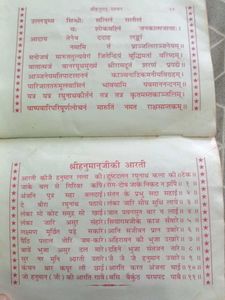 श्रीहनुमत्-स्तवन
उल्लङ्घ्य सिन्धोः सलिलं सलीलं
यः शोकवह्निं जनकात्मजायाः।
आदाय तेनैव ददाह लङ्कां
नमामि तं प्राञ्जलिराञ्जनेयम्॥
मनोजवं मारुततुल्यवेगं जितेन्द्रियं बुद्धिमतां वरिष्ठम्।
वातात्मजं वानरयूथमुख्यं श्रीरामदूतं शरणं प्रपद्ये॥
आञ्जनेयमतिपाटलाननं काञ्चनाद्रिकमनीयविग्रहम्।
पारिजाततरुमूलवासिनं भावयामि पवमाननन्दनम्॥
यत्र यत्र रघुनाथकीर्तनं तत्र तत्र कृतमस्तकाञ्जलिम्।
वाष्पवारिपरिपूर्णलोचनं मारुतिं नमत राक्षसान्तकम्॥
श्रीहनुमान्‌जीकी आरती
आरती कीजै हनुमान लला की। दुष्टदलन रघुनाथ कला की॥टेक॥
जाके बल से गिरिवर काँपै। रोग-दोष जाके निकट न झाँपै॥१॥
अंजनि पुत्र महा बलदाई। संतन के प्रभु सदा सहाई॥२॥
दे बीरा रघुनाथ पठाये। लंका जारि सीय सुधि लाये॥३॥
लंका सो कोट समुद्र सी खाई। जात पवनसुत बार न लाई॥४॥
लंका जारि असुर संहारे। सियारामजीके काज सँवारे॥५॥
लक्ष्मण मूर्छित पड़े सकारे।
पैठि पताल तोरि जम-कारे। अहिरावन की भुजा उखारे॥७॥
बायें भुजा असुर दल मारे। दहिने भुजा संतजन तारे॥८॥
सुर नर मुनि आरती उतारे। जै जै जै हनुमान उचारे॥९॥
कंचन थार कपूर लौ छाई। आरति करत अंजना माई॥१०॥
जो हनुमान (जी) की आरति गावै। बसि बैकुंठ परमपद पावै॥११॥